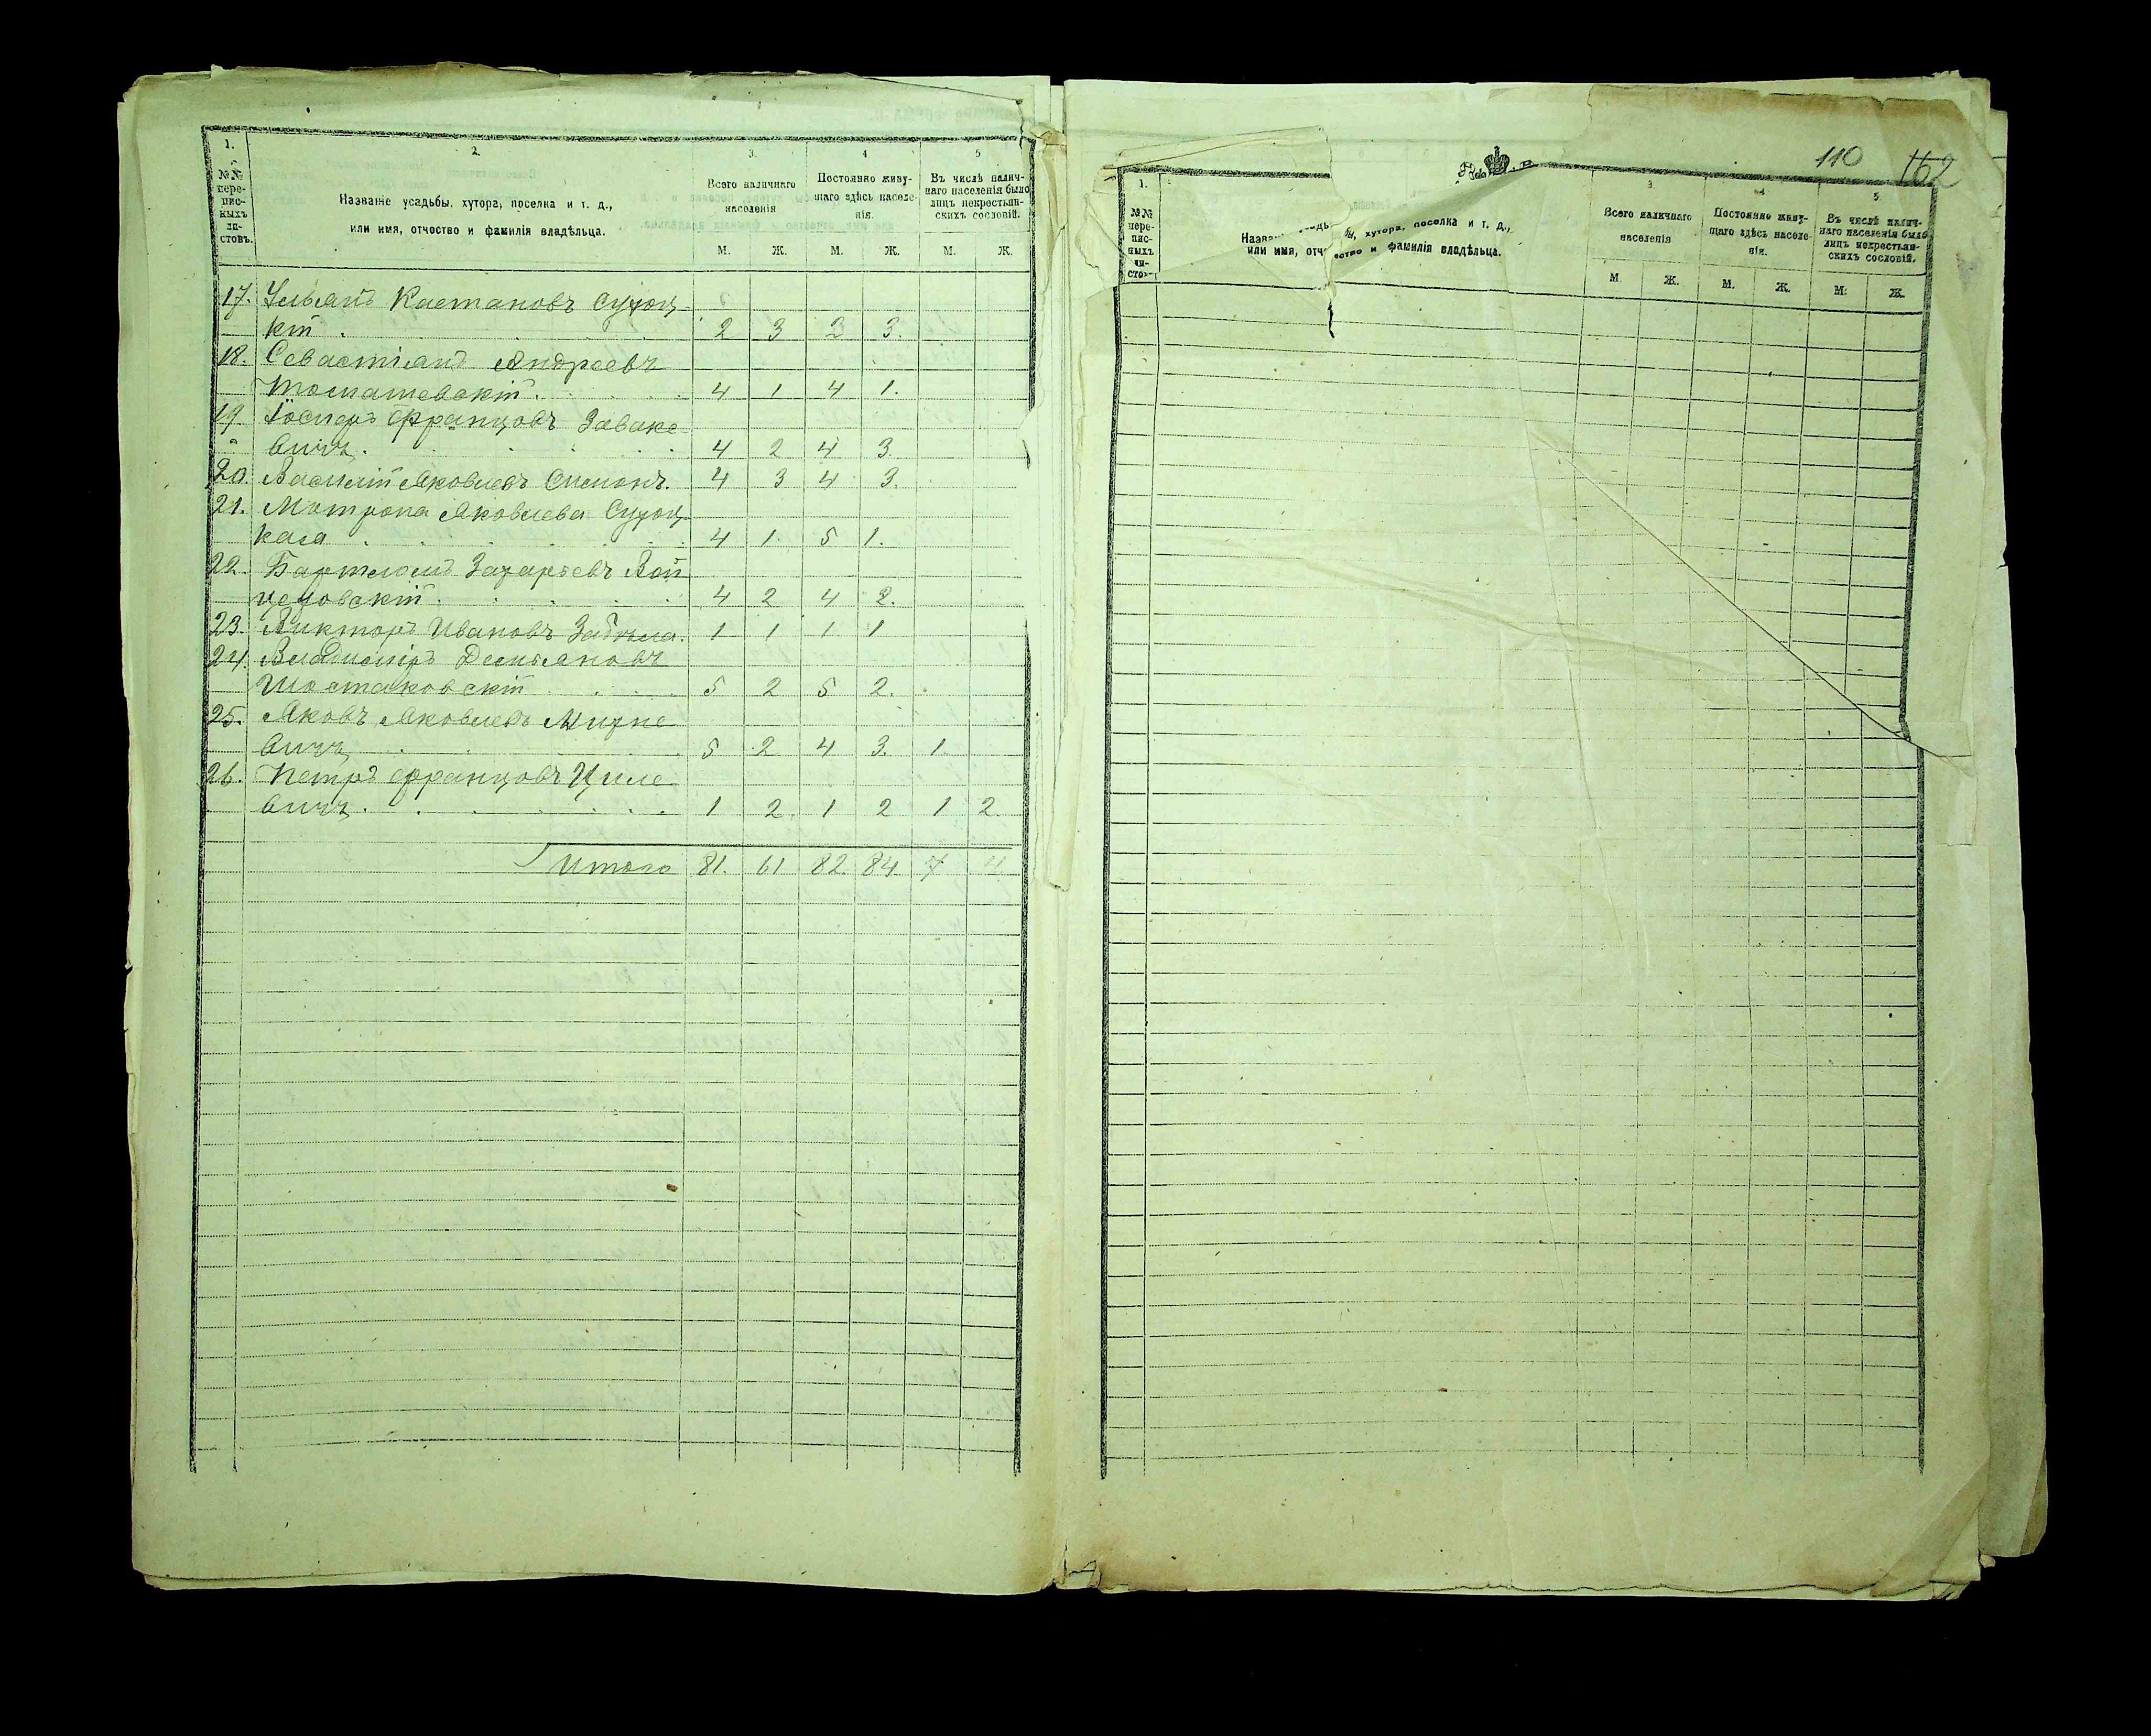 1.
2.
3.
4
5
№№ пере-
пис-
ныхъ
ли-
стовъ.
Названіе усадьбы, хутора, поселка и т. д.,
или имя, отчество и фамилія владѣльца.
Всего наличнаго
населенія
Постоянно живу-
щаго здѣсь населе-
нія.
Въ числѣ налич-
наго населенія было
лицъ некрестьян-
скихъ сословій.
М. Ж. М. Ж. М. Ж.
17. Ульянъ Каетановъ Сухоц-
кій . 2 3 2 3.
18. Севастіанъ Андреевъ
Томашевскій. 4 1 4 1.
19. Іосифъ Францовъ
вичъ. 4 2 4 3
20. Василій Яковлевъ Симонъ. 4 3 4 3.
21. Матрона Яковлева Сухоц
кая . 4 1. 5 1.
22. Бартломѣй Захарьевъ Вой
цеховскій. 4 2 4 2.
23. Викторъ Ивановъ Забѣла. 1 1 1 1
24. Владиміръ Демьяновъ
Шостаковскій 5 2 5 2.
25. Яковъ Яковлевъ Михне
вичъ 5 2 4 3. 1.
26. Петръ Францовъ Циле
вичъ. 1 2. 1 2 1 2.
Итого 81. 61 82. 84. 7 4
110 162
1.
3.
4
5
№№
пере-
пис-
ныхъ
ли-
стовъ
хутора, поселка и т. д.,
или имя, отчество и фамилія владѣльца.
Всего наличнаго
населенія
Постоянно живу-
щаго здѣсь населе-
нія.
Въ числѣ налич-
наго населенія было
лицъ некрестьян-
скихъ сословій.
М. Ж. М. Ж. М. Ж.